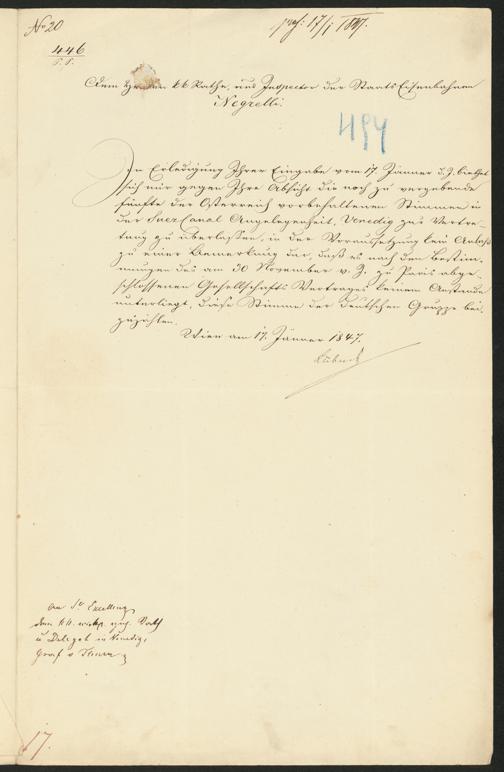 No 20
446
P. P.
Dem Herrn kk Rathe, und Inspector der Staats Eisenbahnen
Negrelli.
494
In Erledigung Ihrer Eingabe vom 17. Jänner d. J. biethet
sich mir gegen Ihre Absicht die noch zu vergebende
fünfte der Österreich vorbehaltenen Stimmen in
der Suez Canal Angelegenheit, Venedig zur Vertre-
tung zu überlassen, in der Voraussetzung kein Anlaß
zu einer Bemerkung dar, daß es nach den Bestim-
mungen des am 30 November v. J. zu Paris abge-
schlossenen Gesellschafts Vertrages keinem Anstande
unterliegt, diese Stimme der deutschen Gruppe bei-
zuzählen.
Wien am 17. Jänner 1847.
Kübeck
An Sr Excellenz
dem k.k. wirkl. geh. Rath
u Delegat in Venedig,
Graf v Thurn
17.